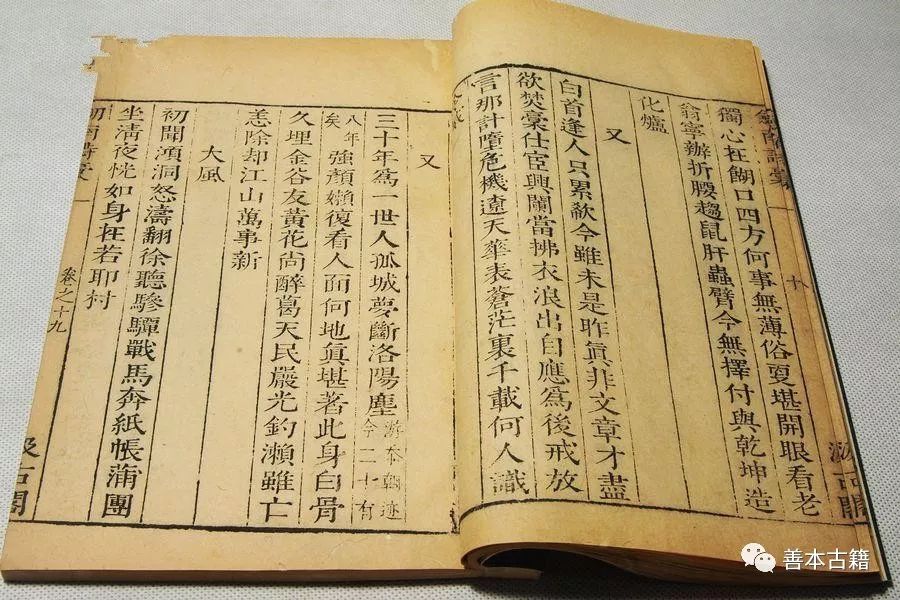 十
獨心在餬口四方何事無薄俗更堪開眼看老
翁寧辦折腰趨鼠肝蟲臂今無擇付與乾坤造
化爐
又
白首逢人只累欷今雖未是昨眞非文章才盡
欲焚稾仕宦興闌當拂衣浪出自應爲後戒放
言那計墮危機遼天華表蒼茫裏千載何人識
又
三十年爲一世人孤城夢斷洛陽塵游朝今二十有
八年矣强顏嬾復看人面何地眞堪著此身白骨
久埋金谷友黃花尚醉葛天民嚴光釣瀨雖亡
恙除却江山萬事新
大風
初聞澒洞怒濤翻徐聽驂驔戰馬奔紙帳蒲團
坐清夜恍如身在若耶村
卷之十九
汲古閣
善本古籍